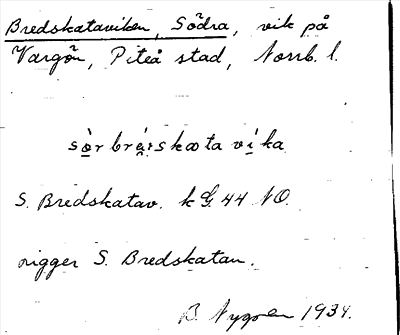 Bredskataviken, Södra, vik på
Vargön, Piteå stad, Norrb. l.
sö̀r brá̤i̯skæta vi̱ka
S. Bredskatav. kG. 44 NO.
rigger S. Bredskatan.
B. Nygren 1934.